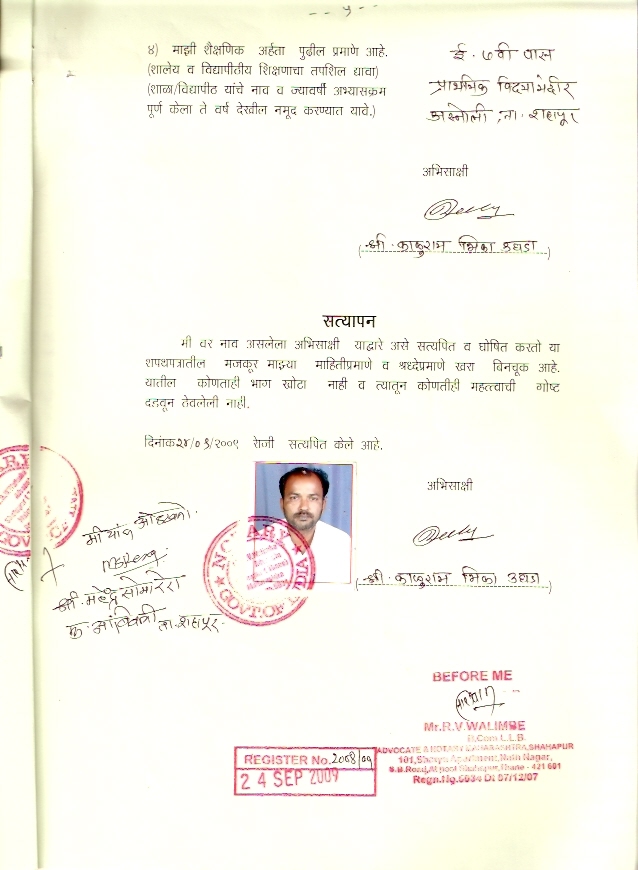 -- ५ --
४) माझी शैक्षणिक अर्हता पुढील प्रमाणे आहे.
(शालेय व विद्यापीतीय शिक्षणाचा तपशिल द्यावा)
(शाळा/विद्यापीठ यांचे नाव व ज्यावर्षी अभ्यासक्रम
पूर्ण केला ते वर्ष देखील नमूद करण्यात यावे.)
इ. ७वी पास
प्राथमिक विद्यामंदीर
कास्नोली, ता. शहापूर
अभिसाक्षी
(श्री. काळुराम भिका उघडा)
सत्यापन
मी वर नाव असलेला अभिसाक्षी याद्वारे असे सत्यपित व घोषित करतो या
शपथपत्रातील मजकूर माझ्या माहितीप्रमाणे व श्रध्देप्रमाणे खरा बिनचूक आहे.
यातील कोणताही भाग खोटा नाही व त्यातून कोणतीही महत्त्वाची गोष्ट
दडवून ठेवलेली नाही.
दिनांक २४/०९/२००९ रोजी सत्यपित केले आहे.
अभिसाक्षी
श्री. काळुराम भिका उघडा
मी यांना ओळखतो.
श्री. महेंद्र
ता. शहापूर.
NOTARY
GOVT. OF INDIA
BEFORE ME
Mr.R.V.WALIMBE
B.Com L.L.B.
ADVOCATE & NOTARY MAHARASHTRA, SHAHAPUR
Regn.No.6034 Dt 07/12/07
REGISTER No. 2008/09
24 SEP 2009